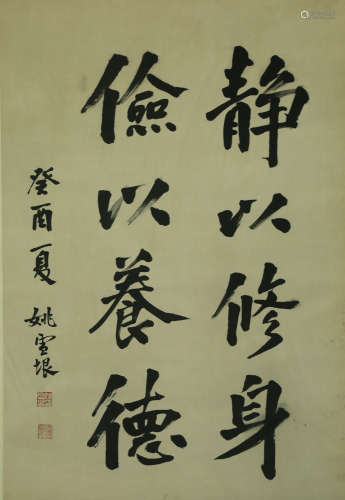 静以修身
儉以養德
癸酉夏 姚雪垠